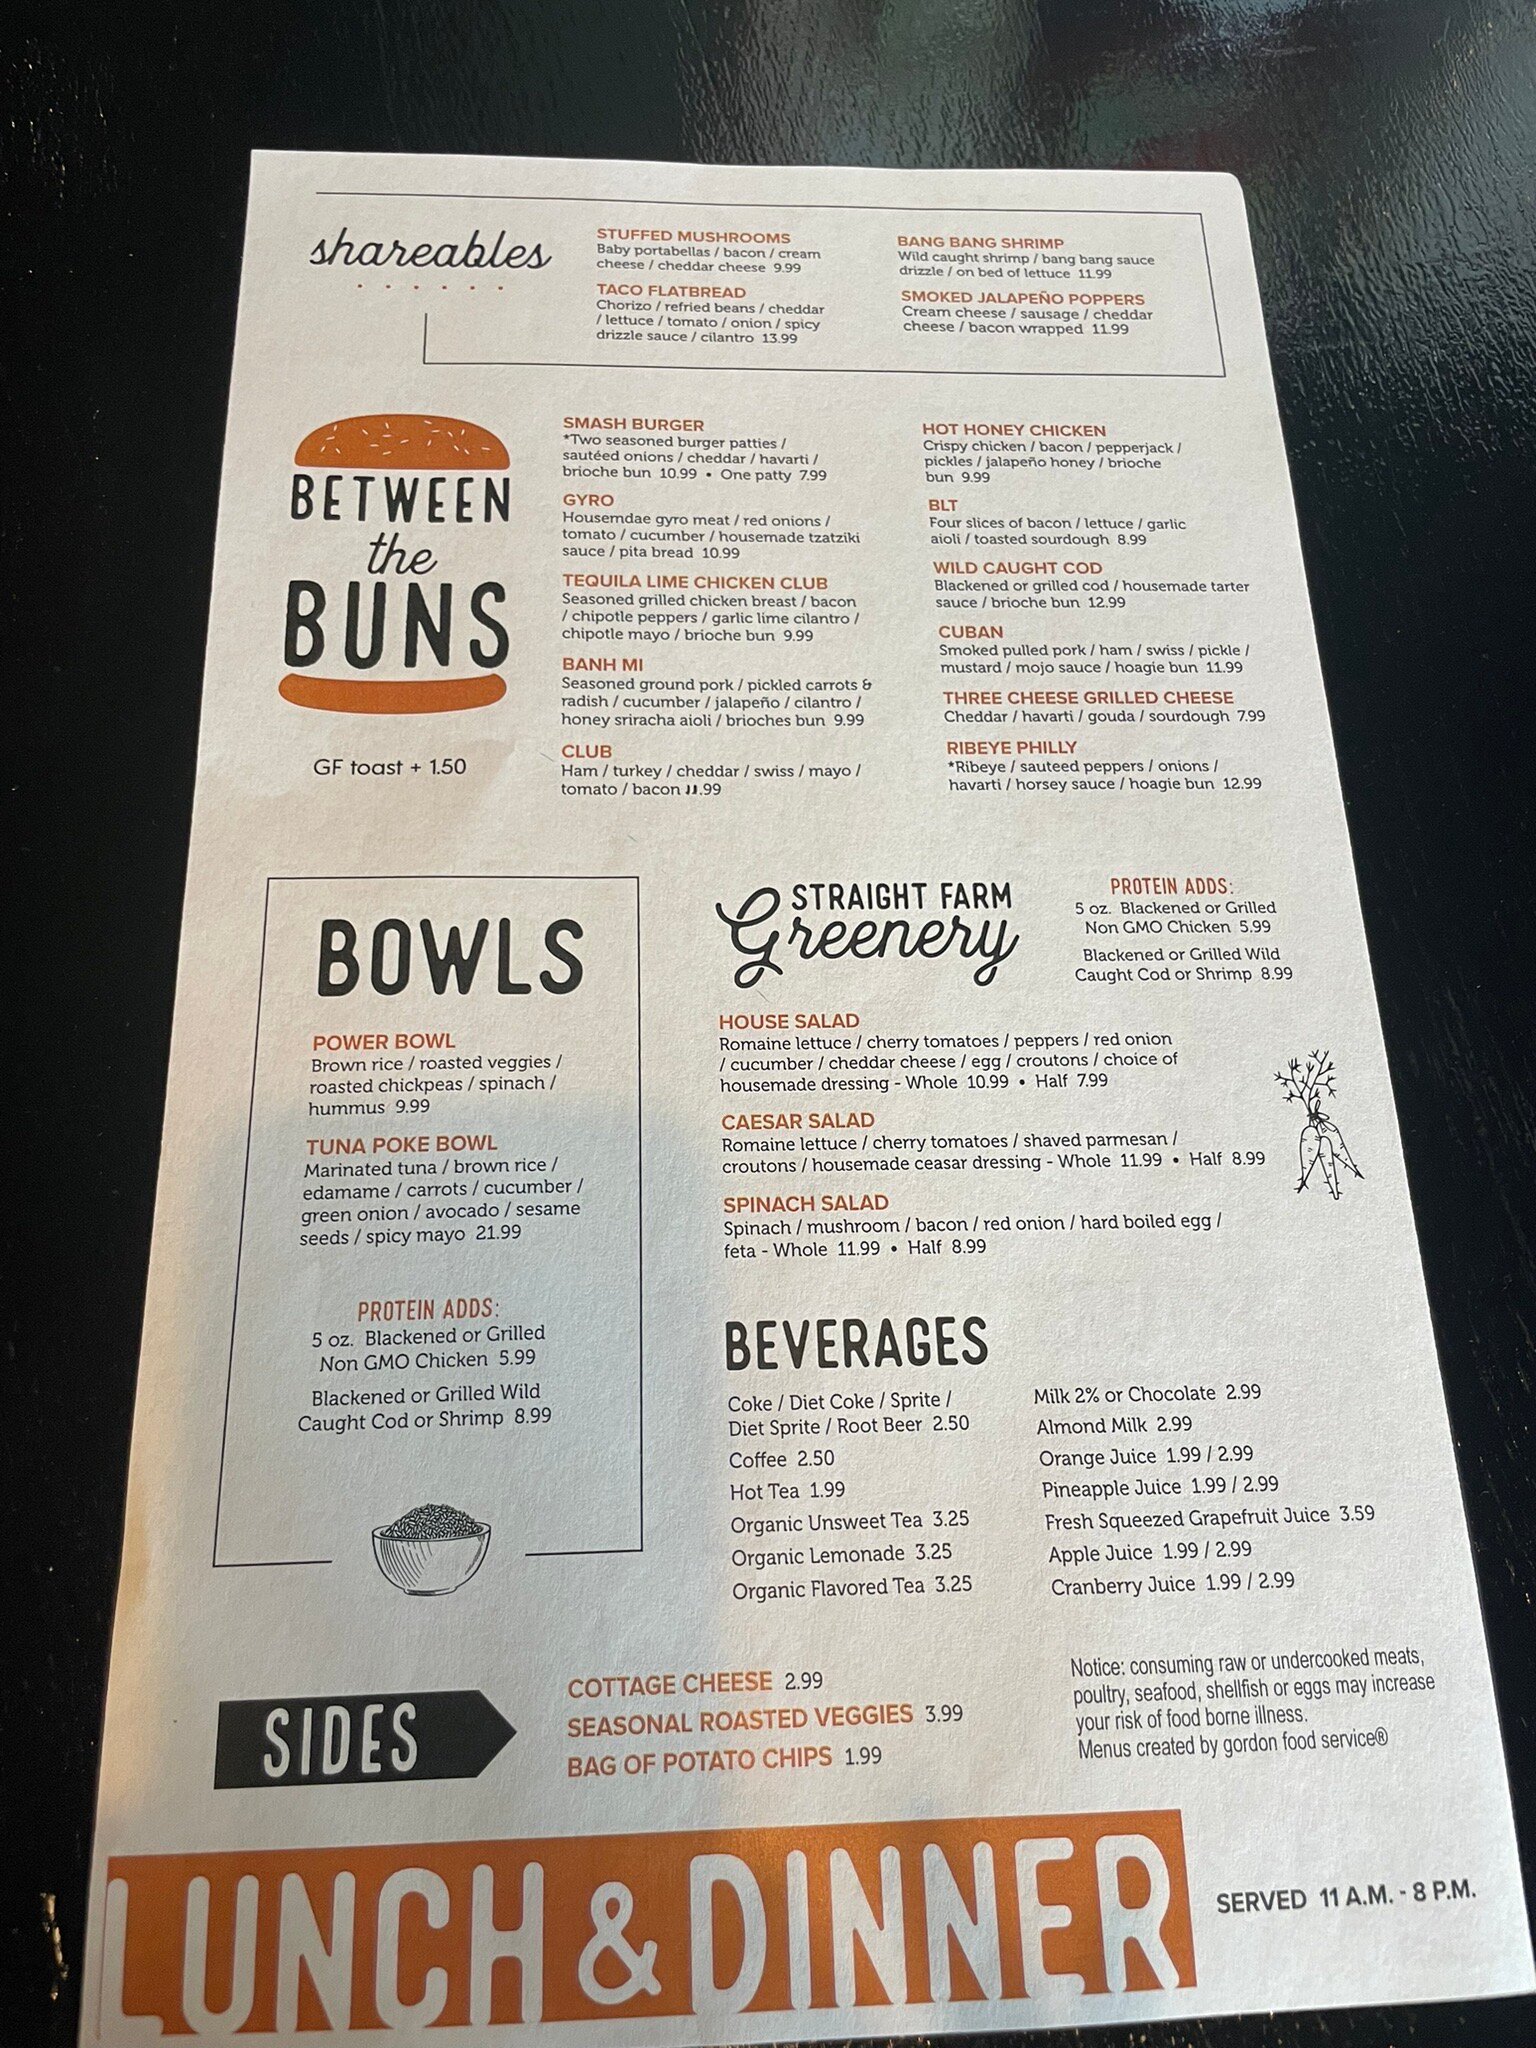 shareables
STUFFED MUSHROOMS
Baby portabellas / bacon / cream
cheese / cheddar cheese 9.99
TACO FLATBREAD
Chorizo / refried beans / cheddar
/ lettuce / tomato / onion / spicy
drizzle sauce / cilantro 13.99
BANG BANG SHRIMP
Wild caught shrimp / bang bang sauce
drizzle / on bed of lettuce 11.99
SMOKED JALAPEÑO POPPERS
Cream cheese / sausage / cheddar
cheese / bacon wrapped 11.99
BETWEEN
the
BUNS
GF toast + 1.50
SMASH BURGER
*Two seasoned burger patties /
sautéed onions / cheddar / havarti /
brioche bun 10.99 • One patty 7.99
GYRO
Housemdae gyro meat / red onions /
tomato / cucumber / housemade tzatziki
sauce / pita bread 10.99
TEQUILA LIME CHICKEN CLUB
Seasoned grilled chicken breast / bacon
/ chipotle peppers / garlic lime cilantro /
chipotle mayo / brioche bun 9.99
BANH MI
Seasoned ground pork / pickled carrots &
radish / cucumber / jalapeño / cilantro /
honey sriracha aioli / brioches bun 9.99
CLUB
Ham / turkey / cheddar / swiss / mayo /
tomato / bacon 11.99
HOT HONEY CHICKEN
Crispy chicken / bacon / pepperjack /
pickles / jalapeño honey / brioche
bun 9.99
BLT
Four slices of bacon / lettuce / garlic
aioli / toasted sourdough 8.99
WILD CAUGHT COD
Blackened or grilled cod / housemade tarter
sauce / brioche bun 12.99
CUBAN
Smoked pulled pork / ham / swiss / pickle /
mustard / mojo sauce / hoagie bun 11.99
THREE CHEESE GRILLED CHEESE
Cheddar / havarti / gouda / sourdough 7.99
RIBEYE PHILLY
*Ribeye / sauteed peppers / onions /
havarti / horsey sauce / hoagie bun 12.99
BOWLS
POWER BOWL
Brown rice / roasted veggies /
roasted chickpeas / spinach /
hummus 9.99
TUNA POKE BOWL
Marinated tuna / brown rice /
edamame / carrots / cucumber /
green onion / avocado / sesame
seeds / spicy mayo 21.99
PROTEIN ADDS:
5 oz. Blackened or Grilled
Non GMO Chicken 5.99
Blackened or Grilled Wild
Caught Cod or Shrimp 8.99
STRAIGHT FARM
Greenery
PROTEIN ADDS:
5 oz. Blackened or Grilled
Non GMO Chicken 5.99
Blackened or Grilled Wild
Caught Cod or Shrimp 8.99
HOUSE SALAD
Romaine lettuce / cherry tomatoes / peppers / red onion
/ cucumber / cheddar cheese / egg / croutons / choice of
housemade dressing - Whole 10.99 • Half 7.99
CAESAR SALAD
Romaine lettuce / cherry tomatoes / shaved parmesan /
croutons / housemade ceasar dressing - Whole 11.99 • Half 8.99
SPINACH SALAD
Spinach / mushroom / bacon / red onion / hard boiled egg /
feta - Whole 11.99 • Half 8.99
BEVERAGES
Coke / Diet Coke / Sprite /
Diet Sprite / Root Beer 2.50
Coffee 2.50
Hot Tea 1.99
Organic Unsweet Tea 3.25
Organic Lemonade 3.25
Organic Flavored Tea 3.25
Milk 2% or Chocolate 2.99
Almond Milk 2.99
Orange Juice 1.99 / 2.99
Pineapple Juice 1.99 / 2.99
Fresh Squeezed Grapefruit Juice 3.59
Apple Juice 1.99 / 2.99
Cranberry Juice 1.99 / 2.99
SIDES
COTTAGE CHEESE 2.99
SEASONAL ROASTED VEGGIES 3.99
BAG OF POTATO CHIPS 1.99
Notice: consuming raw or undercooked meats,
poultry, seafood, shellfish or eggs may increase
your risk of food borne illness.
Menus created by gordon food service®
LUNCH & DINNER
SERVED 11 A.M. - 8 P.M.